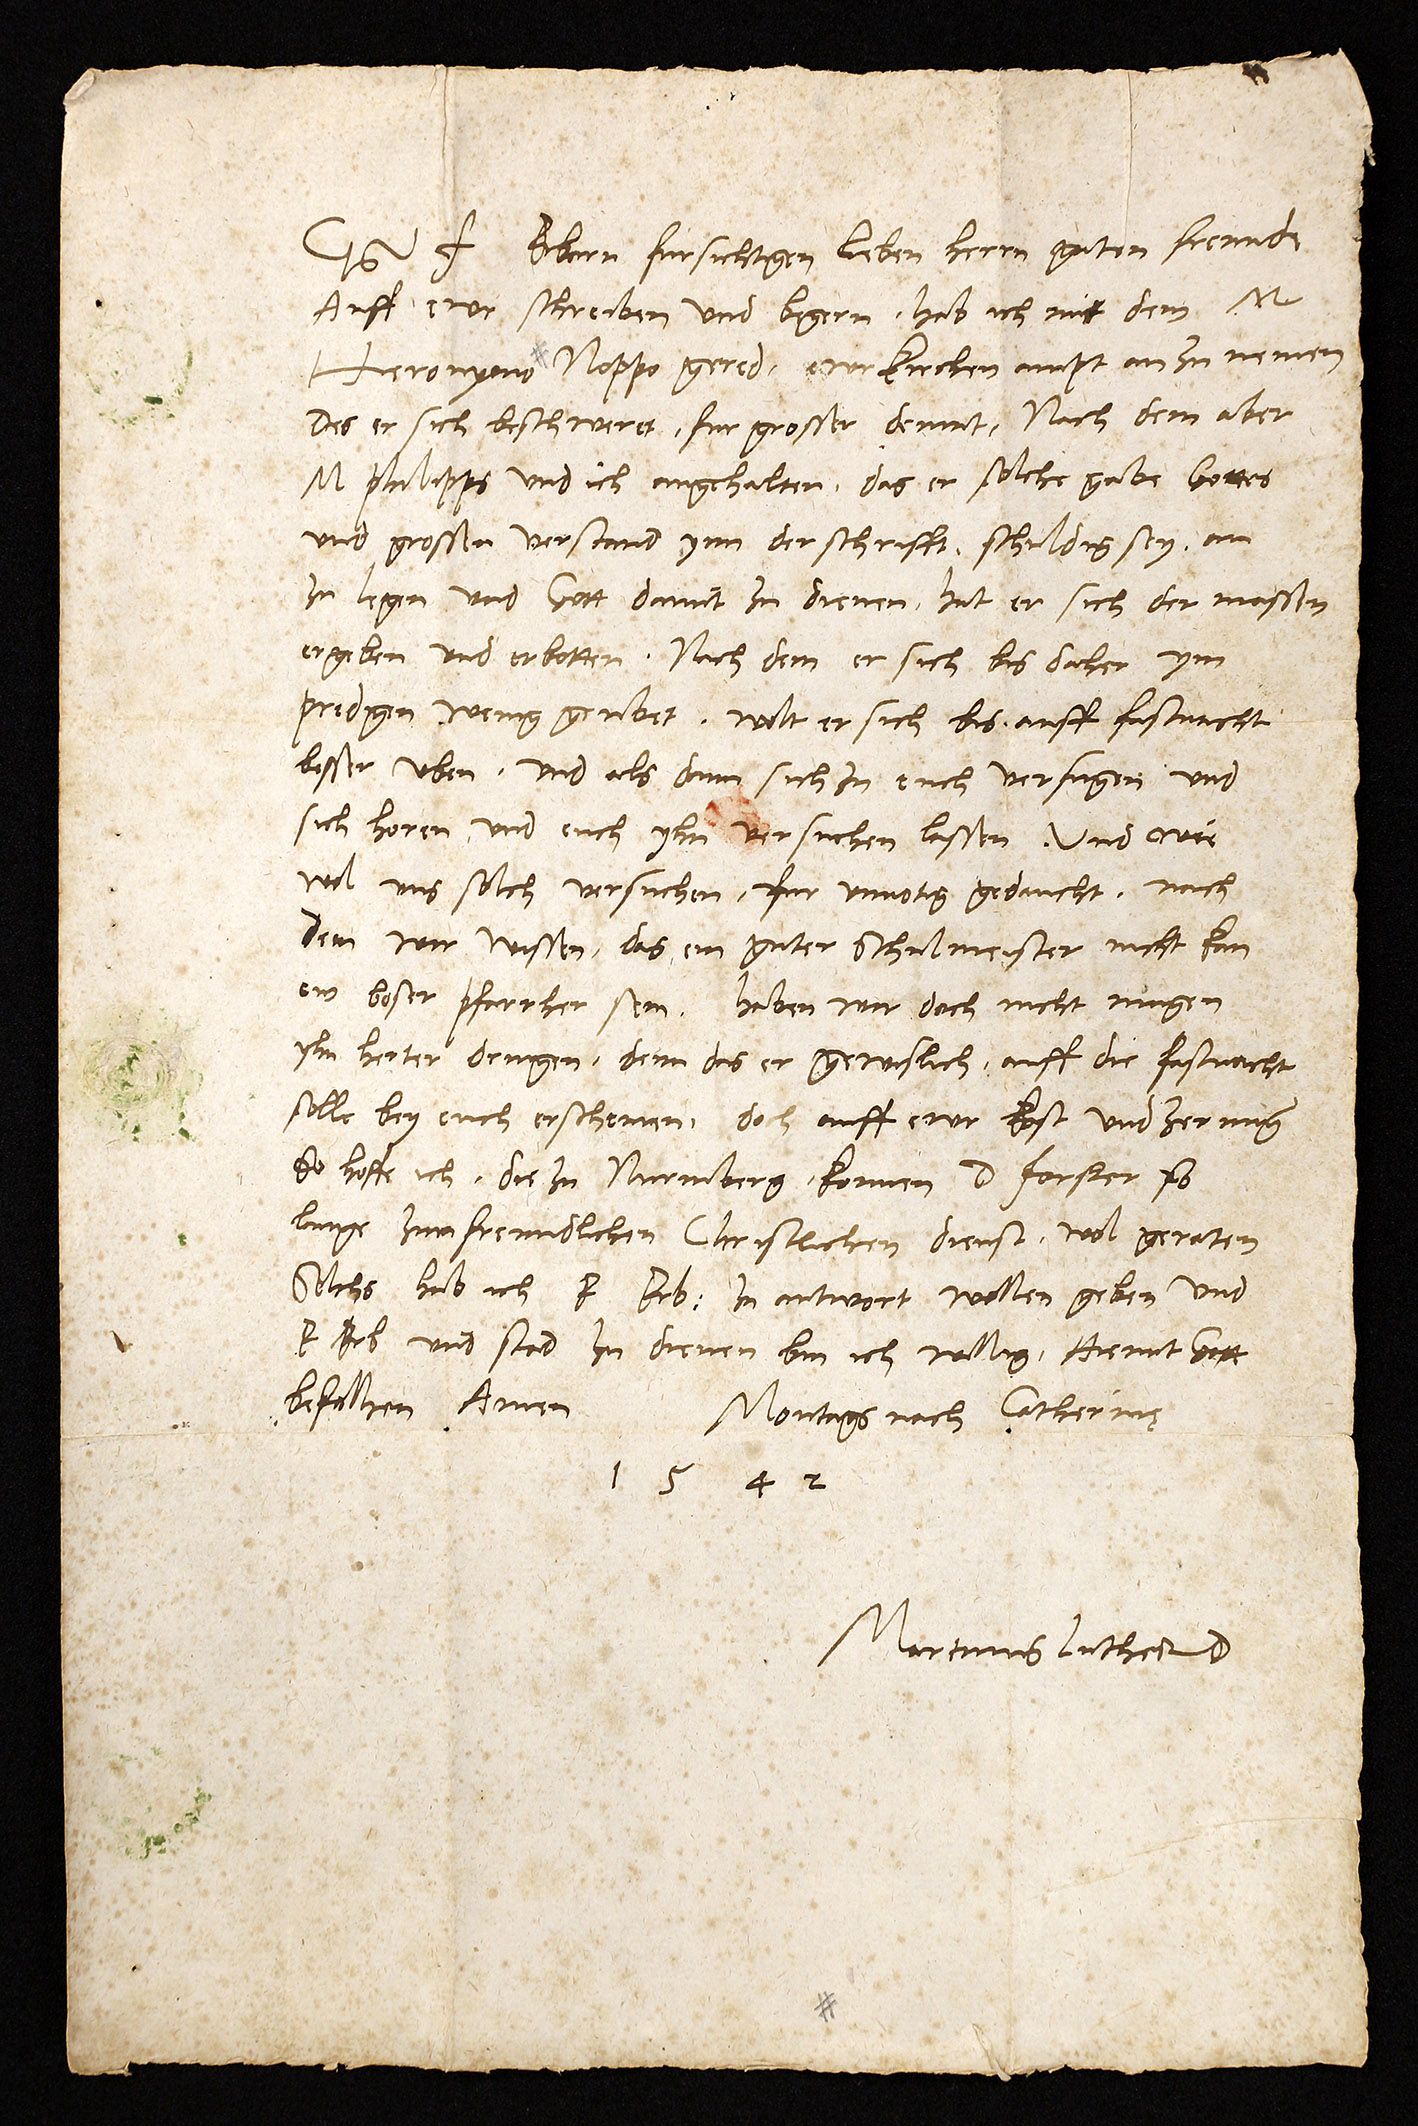 G u f Erbarn fursichtigen lieben herrn guten freunde
Auff ewr schreiben und begern, hab ich mit dem M
Hieronymo Noppo gered, ewr kirchen ampt an zu nemen
Des er sich beschweret, fur grosser demut, Nach dem aber
M philipps und ich angehalten, das er solche gabe Gottes
und grossen verstand ynn der schrifft, schuldig sey, an
zu legen und Gott damit zu dienen, hat er sich der massen
ergeben und erbotten. Nach dem er sich bis daher ym
predigen wenig geubet, wolt er sich bis auff fastnacht
besser uben, und als dann sich zu euch verfugen und
sich horen, und euch yhn versuchen lassen. Und wie
wol uns solch versuchen, fur unnotig gedaucht, nach
dem wir wissen, das ein guter Schulmeister nicht kan
ein boser pfarrher sein, haben wir doch nicht mugen
yhn herter dringen, denn das er gewislich, auff die fastnacht
solle bey euch erscheinen, doch auff ewr kost und zerung
So hoffe ich, die zu Nurmberg, konnen D forster so
lange zum freundlichen Christlichen dienst, wol geraten
Solchs hab ich E Erb: zu antwort wollen geben und
E Erb und stad zu dienen bin ich willig, Hiemit Gott
befolhen Amen Montags nach Catherine
1 5 4 2
Martinus Luther D
#
#